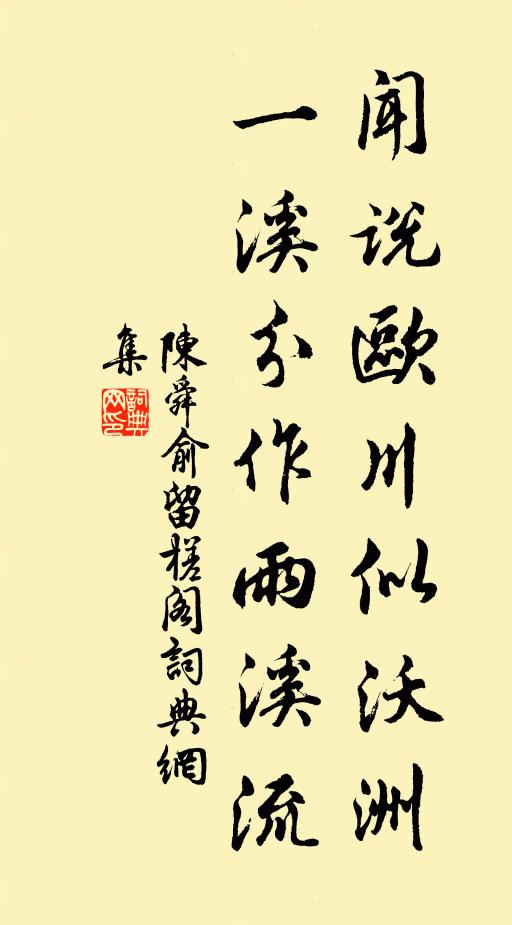 聞說歐川似沃洲
一溪分作兩溪流
陳舜俞留槎閣詞典網
集
詞典网印